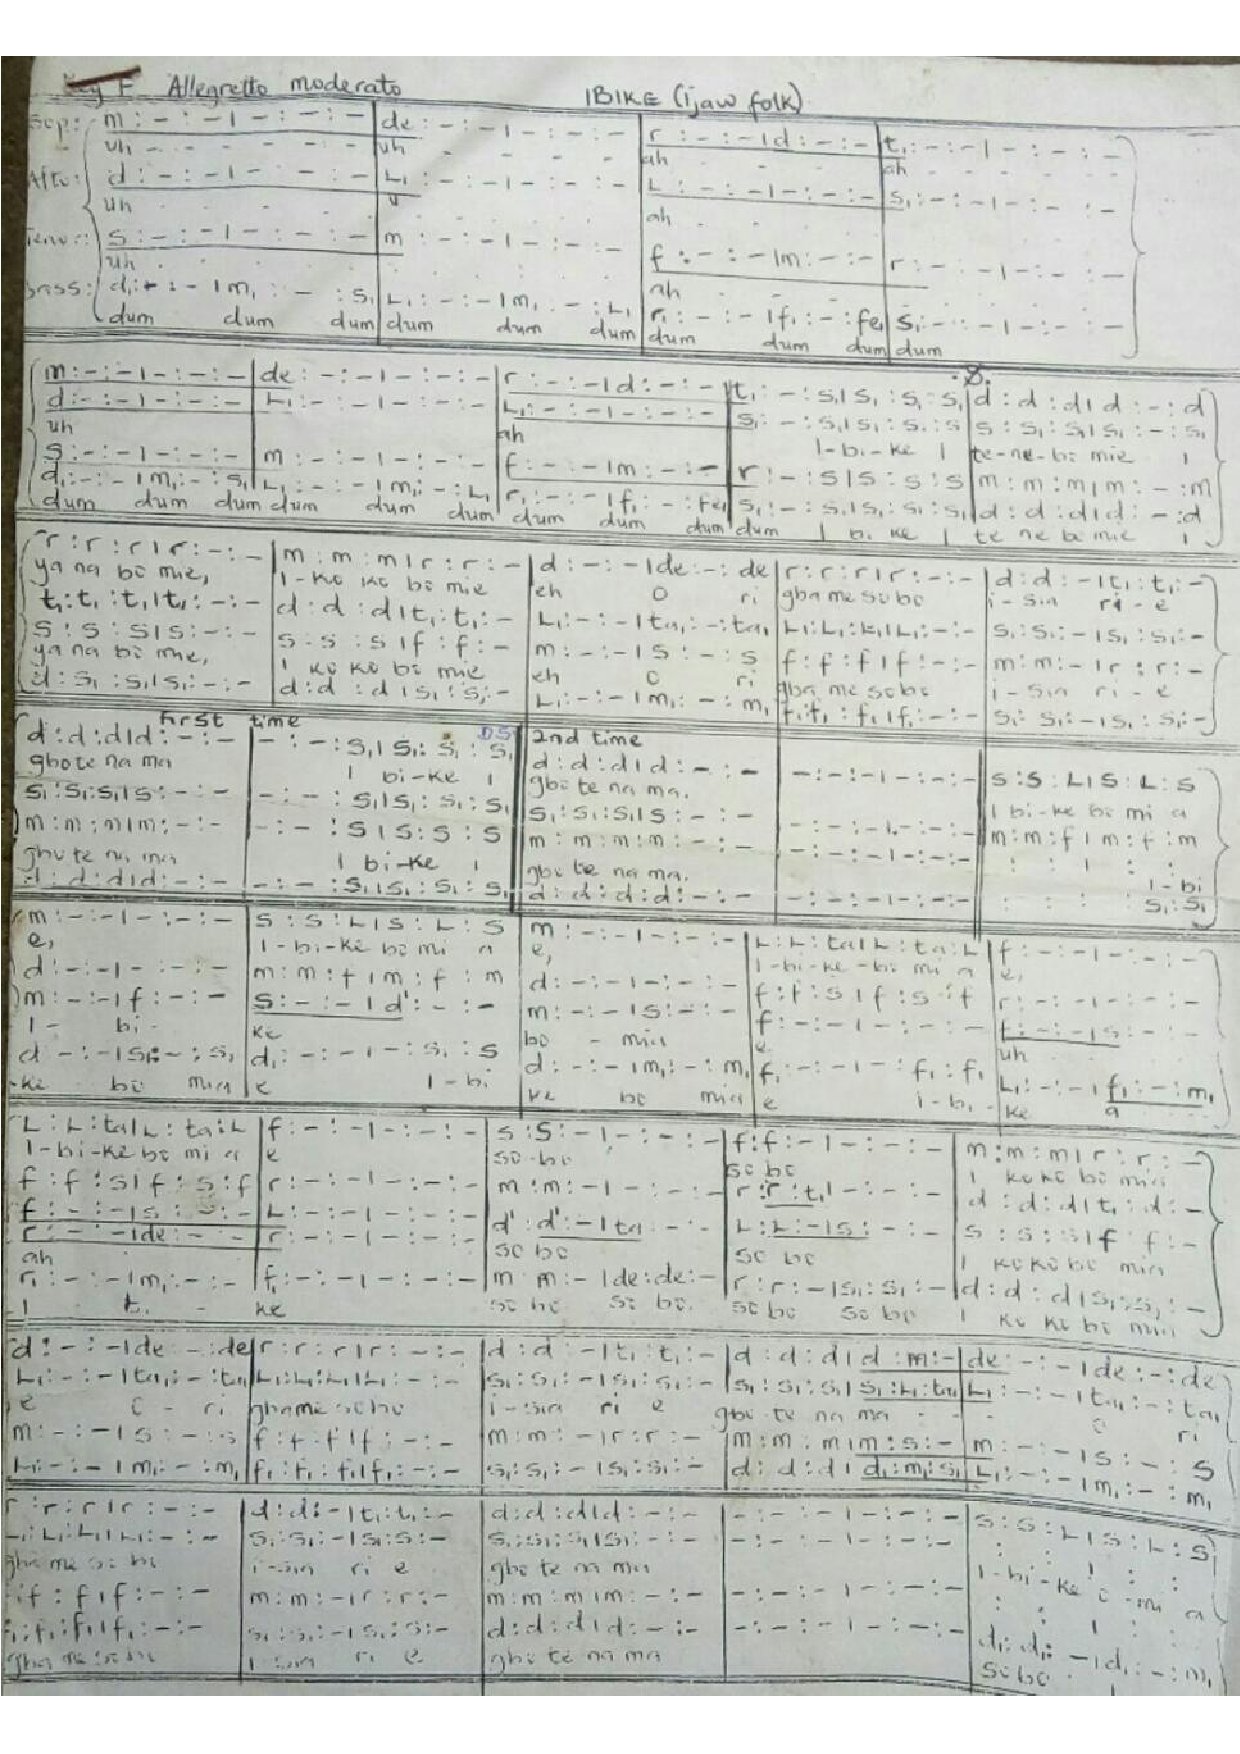 Key F Allegretto moderato
IBIKE (Ijaw folk)
Sop: m : - : - | - : - : - | de : - : - | - : - : - | r : - : - | d : - : - | t₁ : - : - | - : - : -
uh uh ah ah
Alto: d : - : - | - : - : - | L₁ : - : - | - : - : - | L₁ : - : - | - : - : - | s₁ : - : - | - : - : -
uh u ah
Tenor: s : - : - | - : - : - | m : - : - | - : - : - | f : - : - | m : - : - | r : - : - | - : - : -
uh ah
Bass: d₁ : - : - | m₁ : - : s₁ | L₁ : - : - | m₁ : - : L₁ | r₁ : - : - | f₁ : - : fe₁ | s₁ : - : - | - : - : -
dum dum dum dum dum dum dum dum dum dum
m : - : - | - : - : - | de : - : - | - : - : - | r : - : - | d : - : - | t₁ : - : s₁ | s₁ : s₁ : s₁ | d : d : d | d : - : d
d : - : - | - : - : - | L₁ : - : - | - : - : - | L₁ : - : - | - : - : - | s₁ : - : s₁ | s₁ : s₁ : s | s : s₁ : s₁ | s₁ : - : s₁
uh ah I-bi-ke I te-ne-bo mie I
s : - : - | - : - : - | m : - : - | - : - : - | f : - : - | m : - : - | r : - : s | s : s : s | m : m : m | m : - : m
d₁ : - : - | m₁ : - : s₁ | L₁ : - : - | m₁ : - : L₁ | r₁ : - : - | f₁ : - : fe₁ | s₁ : - : s₁ | s₁ : s₁ : s₁ | d : d : d | d : - : d
dum dum dum dum dum dum dum dum dum dum I bi ke I te ne bo mie I
r : r : r | r : - : - | m : m : m | r : r : - | d : - : - | de : - : de | r : r : r | r : - : - | d : d : - | t₁ : t₁ : -
ya na bo mie, I-ko ko bo mie eh o ri gba me so bo i-sia ri-e
t₁ : t₁ : t₁ | t₁ : - : - | d : d : d | t₁ : t₁ : - | L₁ : - : - | ta₁ : - : ta₁ | L₁ : L₁ : L₁ | L₁ : - : - | s₁ : s₁ : - | s₁ : s₁ : -
s : s : s | s : - : - | s : s : s | f : f : - | m : - : - | s : - : s | f : f : f | f : - : - | m : m : - | r : r : -
ya na bo mie, I ko ko bo mie eh o ri gba me so bo i-sia ri-e
d : s₁ : s₁ | s₁ : - : - | d : d : d | s₁ : s₁ : - | L₁ : - : - | m₁ : - : m₁ | f₁ : f₁ : f₁ | f₁ : - : - | s₁ : s₁ : - | s₁ : s₁ : -
first time DS 2nd time
d : d : d | d : - : - | - : - : s₁ | s₁ : s₁ : s₁ | d : d : d | d : - : - | - : - : - | - : - : - | s : s : L | s : L : s
gbo te na ma I bi-ke I gbo te na ma. I bi-ke bo mi a
s₁ : s₁ : s₁ | s : - : - | - : - : s₁ | s₁ : s₁ : s₁ | s₁ : s₁ : s₁ | s : - : - | - : - : - | - : - : - | m : m : f | m : f : m
m : m : m | m : - : - | - : - : s | s : s : s | m : m : m : m : - : - | - : - : - | - : - : - | : : | : :
gbo te na ma I bi-ke I gbo te na ma. I-bi
d : d : d | d : - : - | - : - : s₁ | s₁ : s₁ : s₁ | d : d : d : d : - : - | - : - : - | - : - : - | : : : s₁ : s₁
m : - : - | - : - : - | s : s : L | s : L : s | m : - : - | - : - : - | L : L : ta | L : ta : L | f : - : - | - : - : -
e, I-bi-ke bo mi a e, I-bi-ke-bo mi a e,
d : - : - | - : - : - | m : m : f | m : f : m | d : - : - | - : - : - | f : f : s | f : s : f | r : - : - | - : - : -
m : - : - | f : - : - | s : - : - | d' : - : - | m : - : - | s : - : - | f : - : - | - : - : - | f : - : - | s : - : -
I- bi- ke bo - mia e uh
d - : - | s₁ : - : s₁ | d₁ : - : - | - : s₁ : s | d : - : - | m₁ : - : m₁ | f₁ : - : - | - : f₁ : f₁ | L₁ : - : - | f₁ : - : m₁
-ke bo mia e I-bi ke bo mia e I-bi- ke a
L : L : ta | L : ta : L | f : - : - | - : - : - | s : s : - | - : - : - | f : f : - | - : - : - | m : m : m | r : r : -
I-bi-ke bo mi a e so-bo so bo I ko ko bo mia
f : f : s | f : s : f | r : - : - | - : - : - | m : m : - | - : - : - | r : r : t₁ | - : - : - | d : d : d | t₁ : d : -
f : - : - | s : - : - | L : - : - | - : - : - | d' : d' : - | ta - : - | L : L : - | s : - : - | s : s : s | f : f : -
r : - - | de : - - | r : - : - | - : - : - so bo so bo I ko ko bo mia
ah
r₁ : - : - | m₁ : - : - | f₁ : - : - | - : - : - | m m : - | de : de : - | r : r : - | s₁ : s₁ : - | d : d : d | s₁ : s₁ : -
ke so bo so bo. so bo so bo I ko ko bo mia
d : - : - | de - : de | r : r : r | r : - : - | d : d : - | t₁ : t₁ : - | d : d : d | d : m : - | de : - : - | de : - : de
L₁ : - : - | ta₁ : - : ta₁ | L₁ : L₁ : L₁ | L₁ : - : - | s₁ : s₁ : - | s₁ : s₁ : - | s₁ : s₁ : s₁ | s₁ : L₁ : ta₁ | L₁ : - : - | ta₁ : - : ta₁
e o - ri gba me so bo i-sia ri e gbo-te na ma - - o ri
m : - : - | s : - : s | f : f : f | f : - : - | m : m : - | r : r : - | m : m : m | m : s : - | m : - : - | s : - : s
L₁ : - : - | m₁ : - : m₁ | f₁ : f₁ : f₁ | f₁ : - : - | s₁ : s₁ : - | s₁ : s₁ : - | d : d : d | d₁ : m₁ : s₁ | L₁ : - : - | m₁ : - : m₁
r : r : r | r : - : - | d : d : - | t₁ : t₁ : - | d : d : d | d : - : - | - : - : - | - : - : - | s : s : L | s : L : s
L₁ : L₁ : L₁ | L₁ : - : - | s₁ : s₁ : - | s₁ : s : - | s₁ : s₁ : s₁ | s₁ : - : - | - : - : - | - : - : -
gba me so bo i-sia ri e gbo te na ma I-bi-ke a
f : f : f | f : - : - | m : m : - | r : r : - | m : m : m | m : - : - | - : - : - | - : - : -
f₁ : f₁ : f₁ | f₁ : - : - | s₁ : s₁ : - | s₁ : s : - | d : d : d | d : - : - | - : - : - | - : - : - | d₁ : d₁ : - | d₁ : - : m₁
gba me so bo I sia ri e gbo te na ma so bo